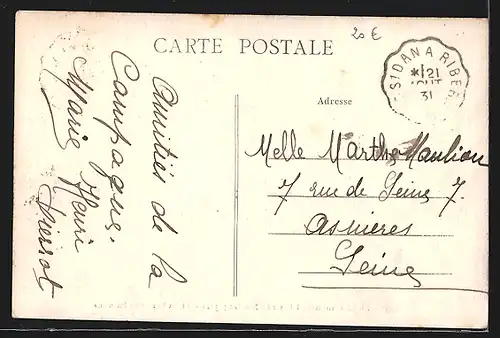 CARTE POSTALE
20 €
ST DAN A RIBER
* 21
AOUT
31
Adresse
Amitiés de la
Campagne.
Marie Henri
Pierrot
Melle Marthe Maulion
7 rue de Seine 7.
Asnieres
Seine